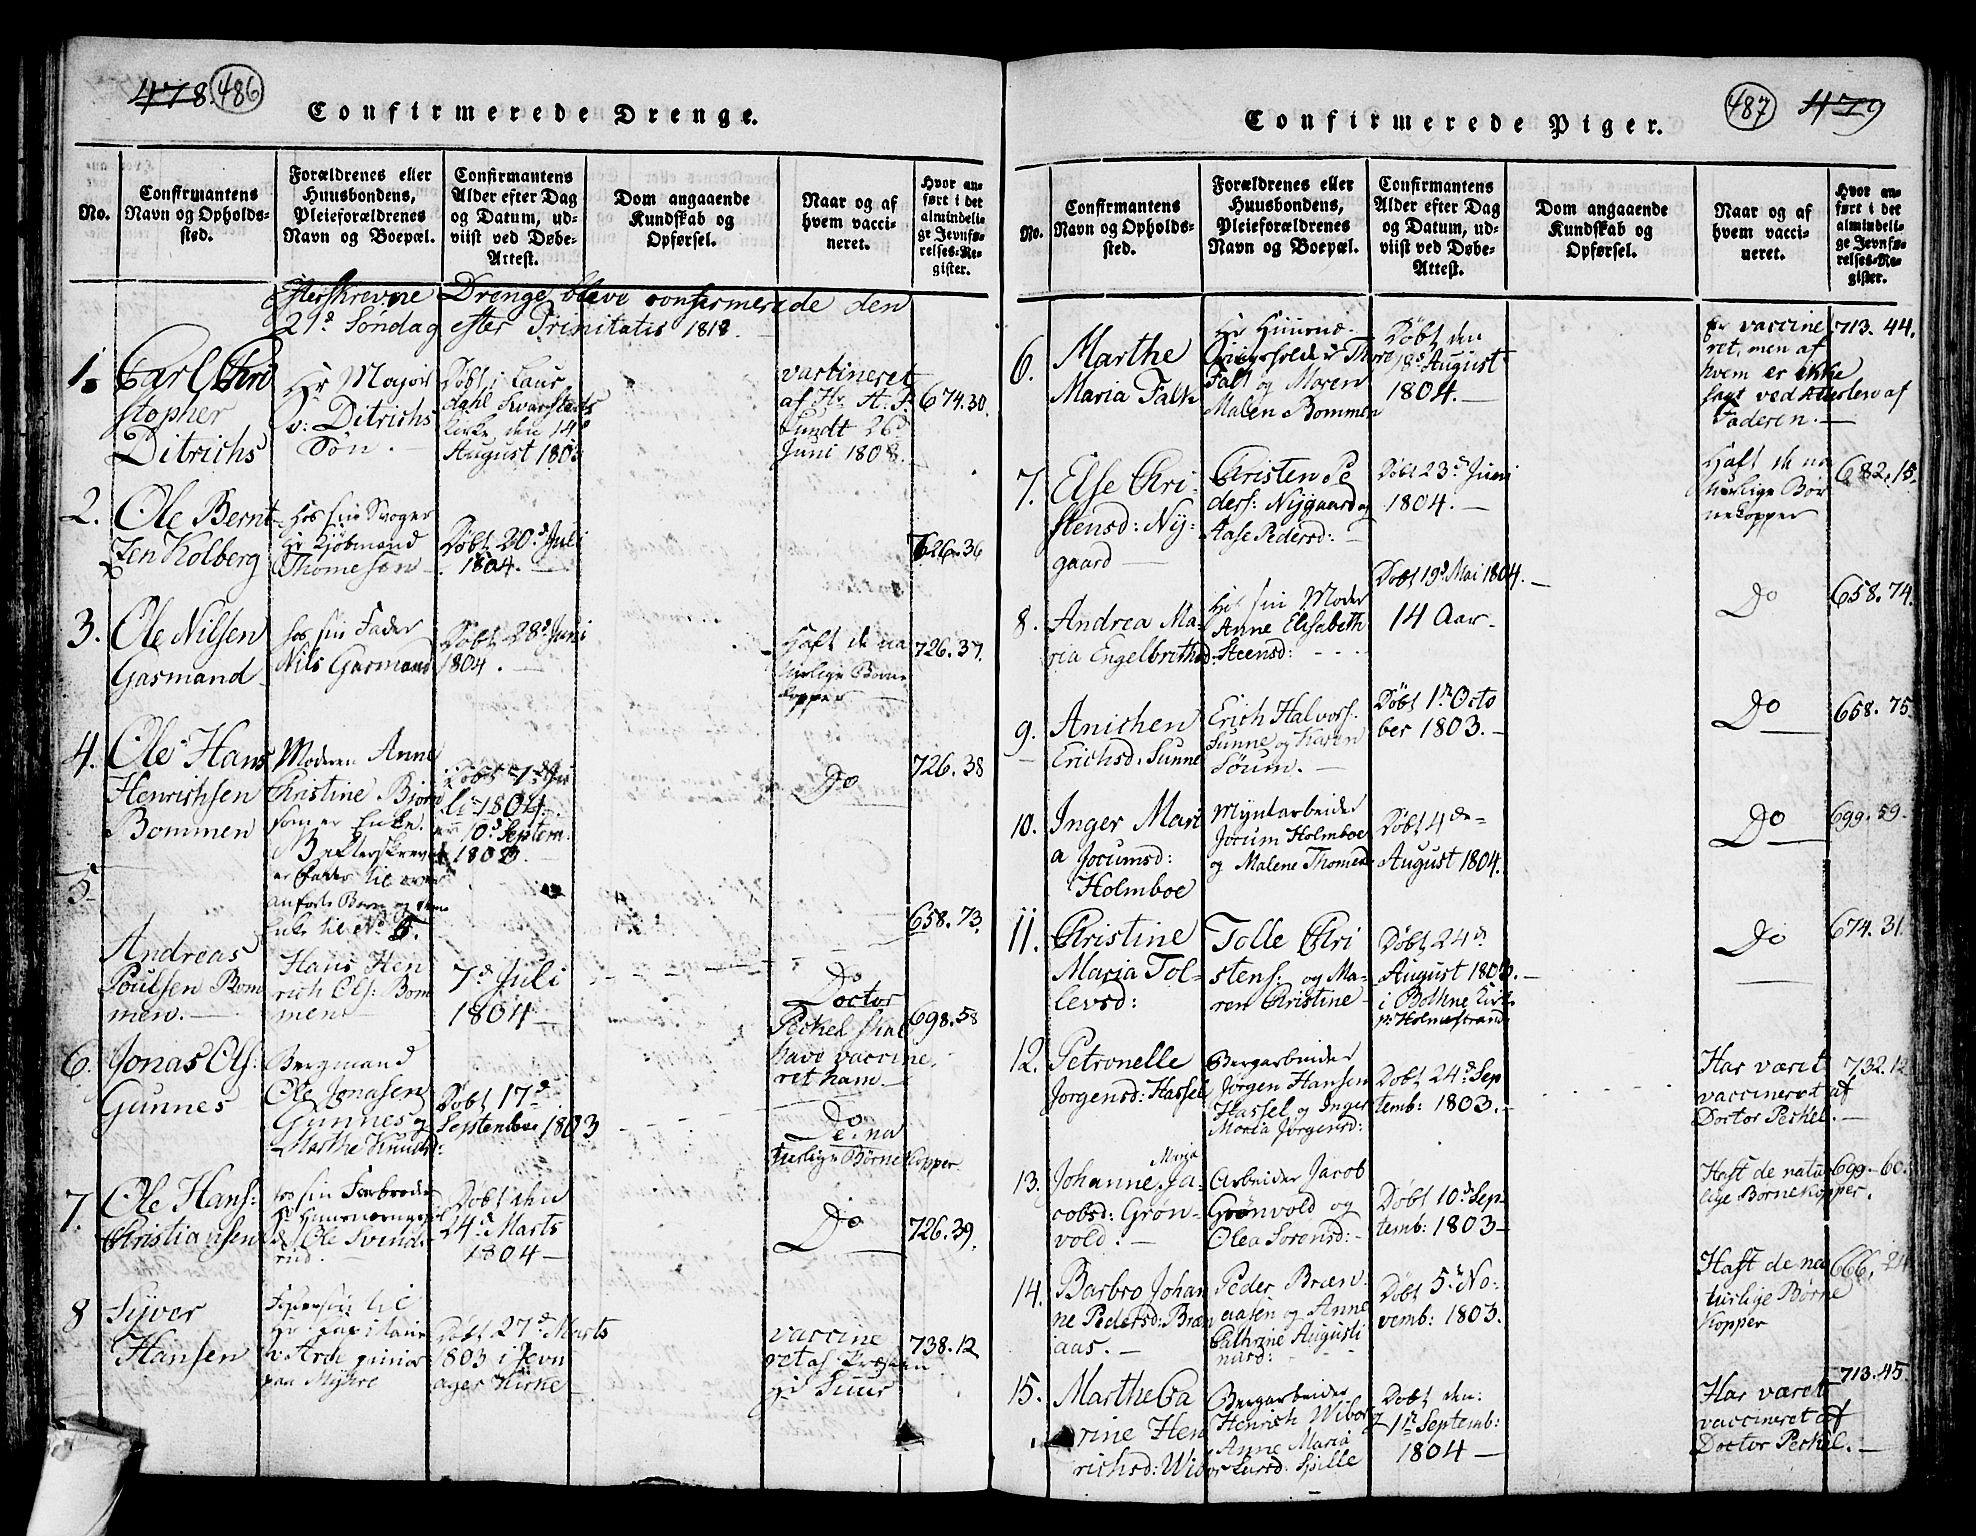 478. 486
Confirmerede Drenge.
No.
Confirmantens
Navn og Opholds-
sted.
Forældrenes eller
Huusbondens,
Pleieforældrenes
Navn og Boepæl.
Confirmantens
Alder efter Dag
og Datum, ud-
viist ved Døbe-
Attest.
Dom angaaende
Kundskab og
Opførsel.
Naar og af
hvem vacci-
neret.
Hvor an-
ført i det
almindeli-
ge Jevnfø-
relses-Re-
gister.
Efterskrevne Drenge bleve confirmerede den
21d Søndag efter Trinitatis 1818.
1.
Carl Chri
stopher
Ditrichs
Hr Major
v: Ditrichs
Søn.
Døbt i Laur
dahl Svarstads
Kirke den 14d
August 1803
vaccineret
af Hr. A. F.
Lundt 26d
Juni 1808.
674.30.
2.
Ole Bernt
zen Kolberg
Hos sin Svoger
Hr Kjøbmand
Thomesen
Døbt 20d Juli
1804.
726.36
3.
Ole Nilsen
Gasmand
hos sin Fader
Nils Gasmand
Døbt 28d Juni
1804.
Haft de na
turlige Børne
kopper
726.37.
4.
Ole Hans
Henrichsen
Bommen
Moderen Anne
Christine Bjørn
som er Enke.
NB efterskrevne
er Fader til oven
anførte Barn og denne
Enke til No 5.
Døbt 1d Ju
li 1804.
10d Septem.
1803
Do
726.38
5
Andreas
Poulsen Bom
men.
Hans Hen
rich Ols: Bom
men
7d Juli
1804
Do
658.73.
6.
Jonas Ols:
Gunnes
Bergmand
Ole Jonasen
Gunnes og
Marthe Knudsd:
Døbt 17d
September 1803
Doctor
Peckel skal
have vaccine
ret ham.
698.58
7.
Ole Hans:
Christiansen
hos sin Farbroder
Ole Svend-
rud.
Døbt den
24d Marts
1804
Do: na
turlige Børnekopper
Do
726.39.
8
Syver
Hansen
Hr Capitain
v Ark junior
paa Myhre
Døbt 27d Marts
1803 i Jevn
ager Kirke
vaccine
ret af Præsten
Hr Suur
738.12
487 479
Confirmerede Piger.
No.
Confirmantens
Navn og Opholds-
sted.
Forældrenes eller
Huusbondens,
Pleieforældrenes
Navn og Boepæl.
Confirmantens
Alder efter Dag
og Datum, ud-
viist ved Døbe-
Attest.
Dom angaaende
Kundskab og
Opførsel.
Naar og af
hvem vacci-
neret.
Hvor an-
ført i det
almindeli-
ge Jevnfø-
relses-Re-
gister.
6.
Marthe
Maria Falk
Thore
Falk og Maren
Malen Bommen
Døbt den
18d August
1804.
Er vaccine
ret, men af
hvem er ikke
sagt ved Attesten af
Faderen.
713.44.
7.
Else Chri-
stensd: Ny-
gaard
Christen Pe
ders: Nygaard og
Aase Pedersd:
Døbt 23d Juni
1804.
Haft de na
turlige Bør
nekopper
682.15.
8.
Andrea Ma-
ria Engelbrithsd:
Hos sin Moder
Anne Elisabeth
Steensd:
Døbt 19d Mai 1804.
14 Aar.
Do
658.74.
9.
Anichen
Erichsd: Sunne
Erich Halvors.
Sunne og Karen
Søum.
Døbt 1n Octo
ber 1803.
Do
658.75.
10.
Inger Mari
a Jocumsd:
Holmboe
Myntarbeider
Jocum Holmboe
og Malene Thomesd
Døbt 4de
August 1804.
Do
699.59.
11.
Christine
Maria Tol-
levsd:
Tolle Chri
stens. og Ma-
ren Christine
Døbt 24d
August 1803.
i Bothne Kirke
pr Holmestrand
Do
674.31.
12.
Petronelle
Jorgensd: Hassel
Bergarbeider
Jørgen Hansen
Hassel og Inger
Maria Jørgensd:
Døbt 24d Sep
temb: 1803.
Har været
vaccineret af
Doctor Peckel.
732.12
13.
Johanne Maria Ja-
cobsd: Grøn-
vold.
Arbeider Jacob
Grønvold og
Olea Sorensd:
Døbt 10d Sep-
temb: 1803
Haft de natur
lige Børnekopper.
699.60.
14.
Barbro Johan
ne Pedersd: Bræn
aas.
Peder Bræn-
aasen og Anne
Cathrine Augusti
nusd:
Døbt 5te No-
vemb: 1803.
Haft de na
turlige Børne
kopper
666.24
15.
Marthe Ca
rine Hen
richsd: Wibor
Bergarbeider
Henrich Wibor
Anne Maria
Larsd: Spille
Døbt den
1n Septemb:
1804
Har været
vaccineret af
Doctor Peckel.
713.45.